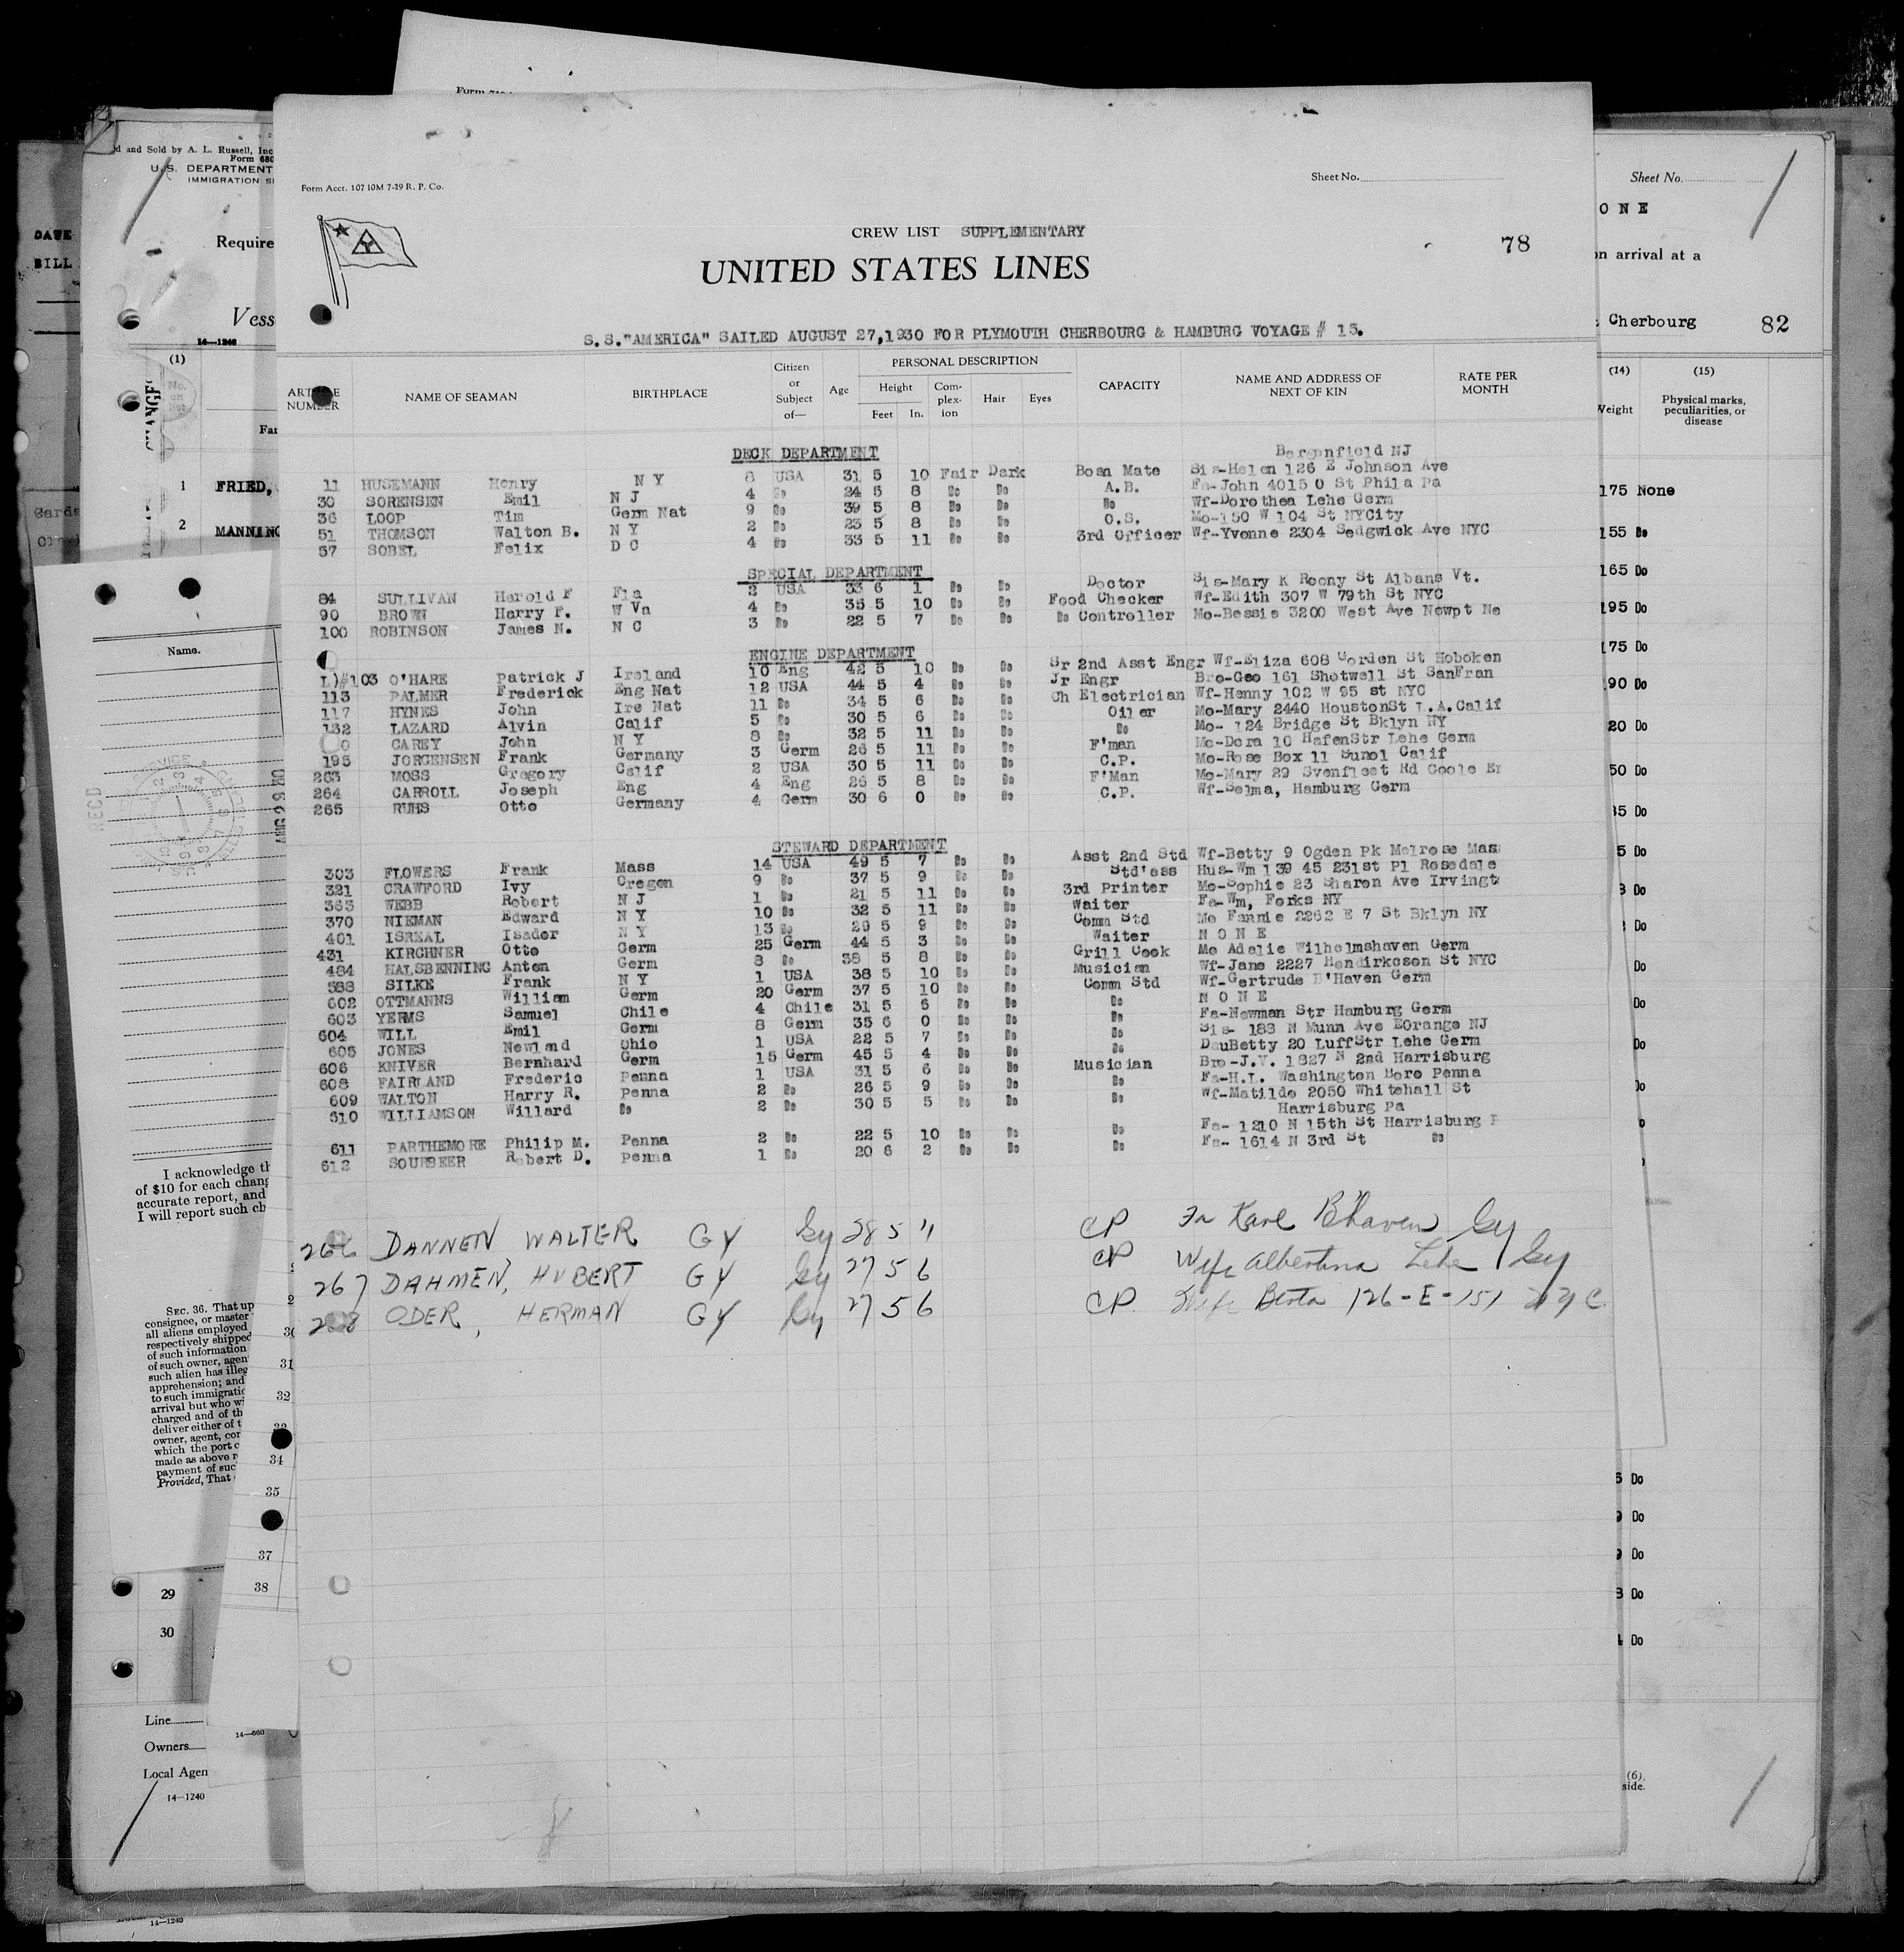 Form Acct. 107 10M 7-29 R. P. Co.
Sheet No.
CREW LIST SUPPLEMENTARY
78
UNITED STATES LINES
S.S."AMERICA" SAILED AUGUST 27,1930 FOR PLYMOUTH CHERBOURG & HAMBURG VOYAGE # 15.
NAME OF SEAMAN
BIRTHPLACE
Citizen or Subject of—
Age
PERSONAL DESCRIPTION
Height
Feet In.
Complexion
Hair
Eyes
CAPACITY
NAME AND ADDRESS OF NEXT OF KIN
RATE PER MONTH
DECK DEPARTMENT
Bergenfield NJ
11 HUSEMANN Henry N Y 8 USA 31 5 10 Fair Dark Bosn Mate Sis-Helen 126 E Johnson Ave
30 SORENSEN Emil N J 4 Do 24 5 8 Do Do A.B. Fa-John 4015 O St Phila Pa
36 LOOP Tim Germ Nat 9 Do 39 5 8 Do Do Do Wf-Dorothea Lehe Germ
51 THOMSON Walton B. N Y 2 Do 23 5 8 Do Do O.S. Mo-150 W 104 St NYCity
57 SOBEL Felix D C 4 Do 33 5 11 Do Do 3rd Officer Wf-Yvonne 2304 Sedgwick Ave NYC
SPECIAL DEPARTMENT
84 SULLIVAN Harold F Fla 2 USA 33 6 1 Do Do Doctor Sis-Mary K Roony St Albans Vt.
90 BROWN Harry P. W Va 4 Do 35 5 10 Do Do Food Checker Wf-Edith 307 W 79th St NYC
100 ROBINSON James N. N C 3 Do 22 5 7 Do Do Do Controller Mo-Bessie 3200 West Ave Newpt Ne
ENGINE DEPARTMENT
L)#103 O'HARE Patrick J Ireland 10 Eng 42 5 10 Do Do Sr 2nd Asst Engr Wf-Eliza 608 Gorden St Hoboken
113 PALMER Frederick Eng Nat 12 USA 44 5 4 Do Do Jr Engr Bro-Geo 161 Shotwell St SanFran
117 HYNES John Ire Nat 11 Do 34 5 6 Do Do Ch Electrician Wf-Henny 102 W 95 st NYC
132 LAZARD Alvin Calif 5 Do 30 5 6 Do Do Oiler Mo-Mary 2440 HoustonSt L.A.Calif
0 CAREY John N Y 8 Do 32 5 11 Do Do Do Mo- 124 Bridge St Bklyn NY
195 JORGENSEN Frank Germany 3 Germ 26 5 11 Do Do F'man Mo-Dora 10 HafenStr Lehe Germ
263 MOSS Gregory Calif 2 USA 30 5 11 Do Do C.P. Mo-Rose Box 11 Sunol Calif
264 CARROLL Joseph Eng 4 Eng 26 5 8 Do Do F'Man Mo-Mary 29 Svenfleet Rd Goole En
265 RUHS Otto Germany 4 Germ 30 6 0 Do Do C.P. Wf-Selma, Hamburg Germ
STEWARD DEPARTMENT
303 FLOWERS Frank Mass 14 USA 49 5 7 Do Do Asst 2nd Std Wf-Betty 9 Ogden Pk Melrose Mass
321 CRAWFORD Ivy Oregon 9 Do 37 5 9 Do Do Std'ess Hus-Wm 139 45 231st Pl Rosedale
363 WEBB Robert N J 1 Do 21 5 11 Do Do 3rd Printer Mo-Sophie 23 Sharon Ave Irvingt
370 NIEMAN Edward N Y 10 Do 32 5 11 Do Do Waiter Fa-Wm, Forks NY
401 ISREAL Isador N Y 13 Do 29 5 9 Do Do Comm Std Mo Fannie 2262 E 7 St Bklyn NY
431 KIRCHNER Otto Germ 25 Germ 44 5 3 Do Do Waiter N O N E
484 HALSBENNING Anton Germ 8 Do 38 5 8 Do Do Grill Cook Mo Adalie Wilhelmshaven Germ
588 SILKE Frank N Y 1 USA 38 5 10 Do Do Musician Wf-Jane 2227 Hendirkcson St NYC
602 OTTMANNS William Germ 20 Germ 37 5 10 Do Do Comm Std Wf-Gertrude B'Haven Germ
603 YERMS Samuel Chile 4 Chile 31 5 6 Do Do Do N O N E
604 WILL Emil Germ 8 Germ 35 6 0 Do Do Do Fa-Newman Str Hamburg Germ
605 JONES Newland Ohio 1 USA 22 5 7 Do Do Do Sis- 188 N Munn Ave EOrange NJ
606 KNIVER Bernhard Germ 15 Germ 45 5 4 Do Do Do DauBetty 20 LuffStr Lehe Germ
608 FAIRLAND Frederic Penna 1 USA 31 5 6 Do Do Musician Bro-J.V. 1827 N 2nd Harrisburg
609 WALTON Harry R. Penna 2 Do 26 5 9 Do Do Do Fa-H.L. Washington Boro Penna
610 WILLIAMSON Willard Do 2 Do 30 5 5 Do Do Do Wf-Matilde 2050 Whitehall St
Harrisburg Pa
611 PARTHEMORE Philip M. Penna 2 Do 22 5 10 Do Do Do Fa- 1210 N 15th St Harrisburg P
612 SOURBEER Robert D. Penna 1 Do 20 6 2 Do Do Do Fa- 1614 N 3rd St Do
266 DANNEN WALTER GY Gy 28 5 11 CP Fa Karl B'haven Gy
267 DAHMEN, HUBERT GY Gy 27 5 6 CP Wife Albertina Lehe Gy
268 ODER, HERMAN GY Gy 27 5 6 CP. Wife Berta 126-E-151 NYC.
d and Sold by A. L. Russell, Inc
Form 680
U.S. DEPARTMENT
IMMIGRATION
Require
Vess
14—1240
(1)
1 FRIED,
2 MANNING
DATE
BILL
Name.
RECD
I acknowledge th
of $10 for each chang
accurate report, and
I will report such ch
SEC. 36. That up
consignee, or master
all aliens employed
respectively shipped
of such information
of such owner, agen
such alien has illeg
apprehension; and
to such immigratic
arrival but who w
charged and of th
deliver either of t
owner, agent, cor
which the port c
made as above r
payment of suc
Provided, That
31
32
34
35
37
38
29
30
Line
Owners
Local Agen
14—1240
Sheet No.
O N E
on arrival at a
Cherbourg 82
(14) (15)
Weight
Physical marks, peculiarities, or disease
175 None
155 Do
165 Do
195 Do
175 Do
90 Do
20 Do
50 Do
35 Do
5 Do
(6).
side.
14—1240